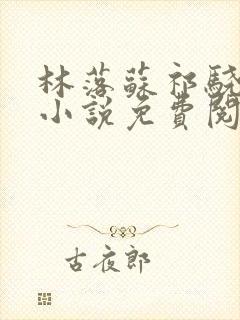 林落蘇祁驍
小說免費閱
古夜郎